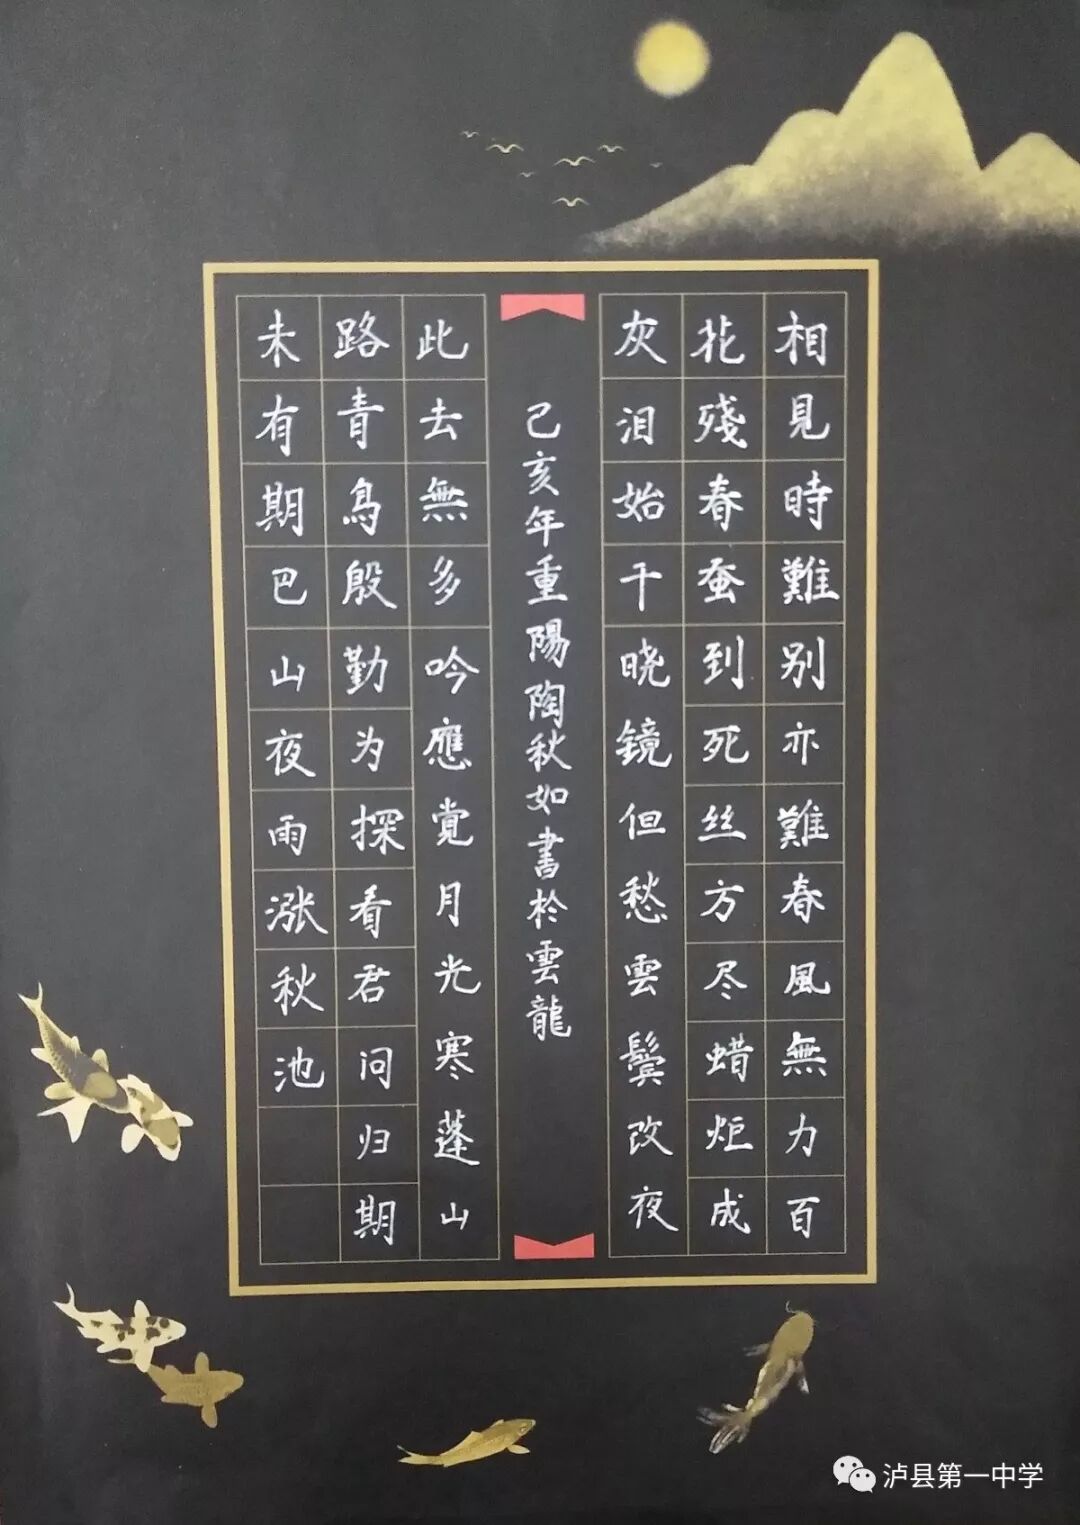 相見時難别亦難春風無力百
花殘春蚕到死丝方尽蜡炬成
灰泪始干晓镜但愁雲鬓改夜
吟應覚月光寒蓬山
此去無多
路青鳥殷勤为探看君问归期
未有期巴山夜雨涨秋池
己亥年重陽陶秋如書於雲龍
泸县第一中学